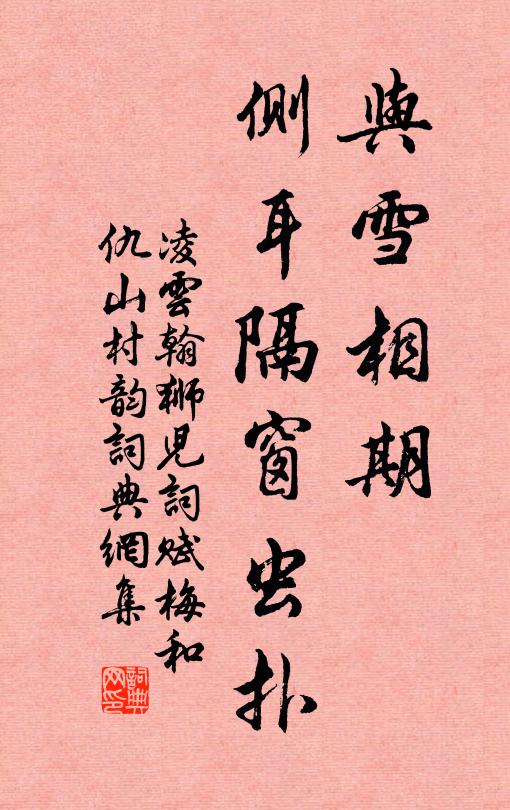 與雪相期
側耳隔窗虫扑
凌雲翰獅児詞賦梅和
仇山村韵詞典網集
詞典网印